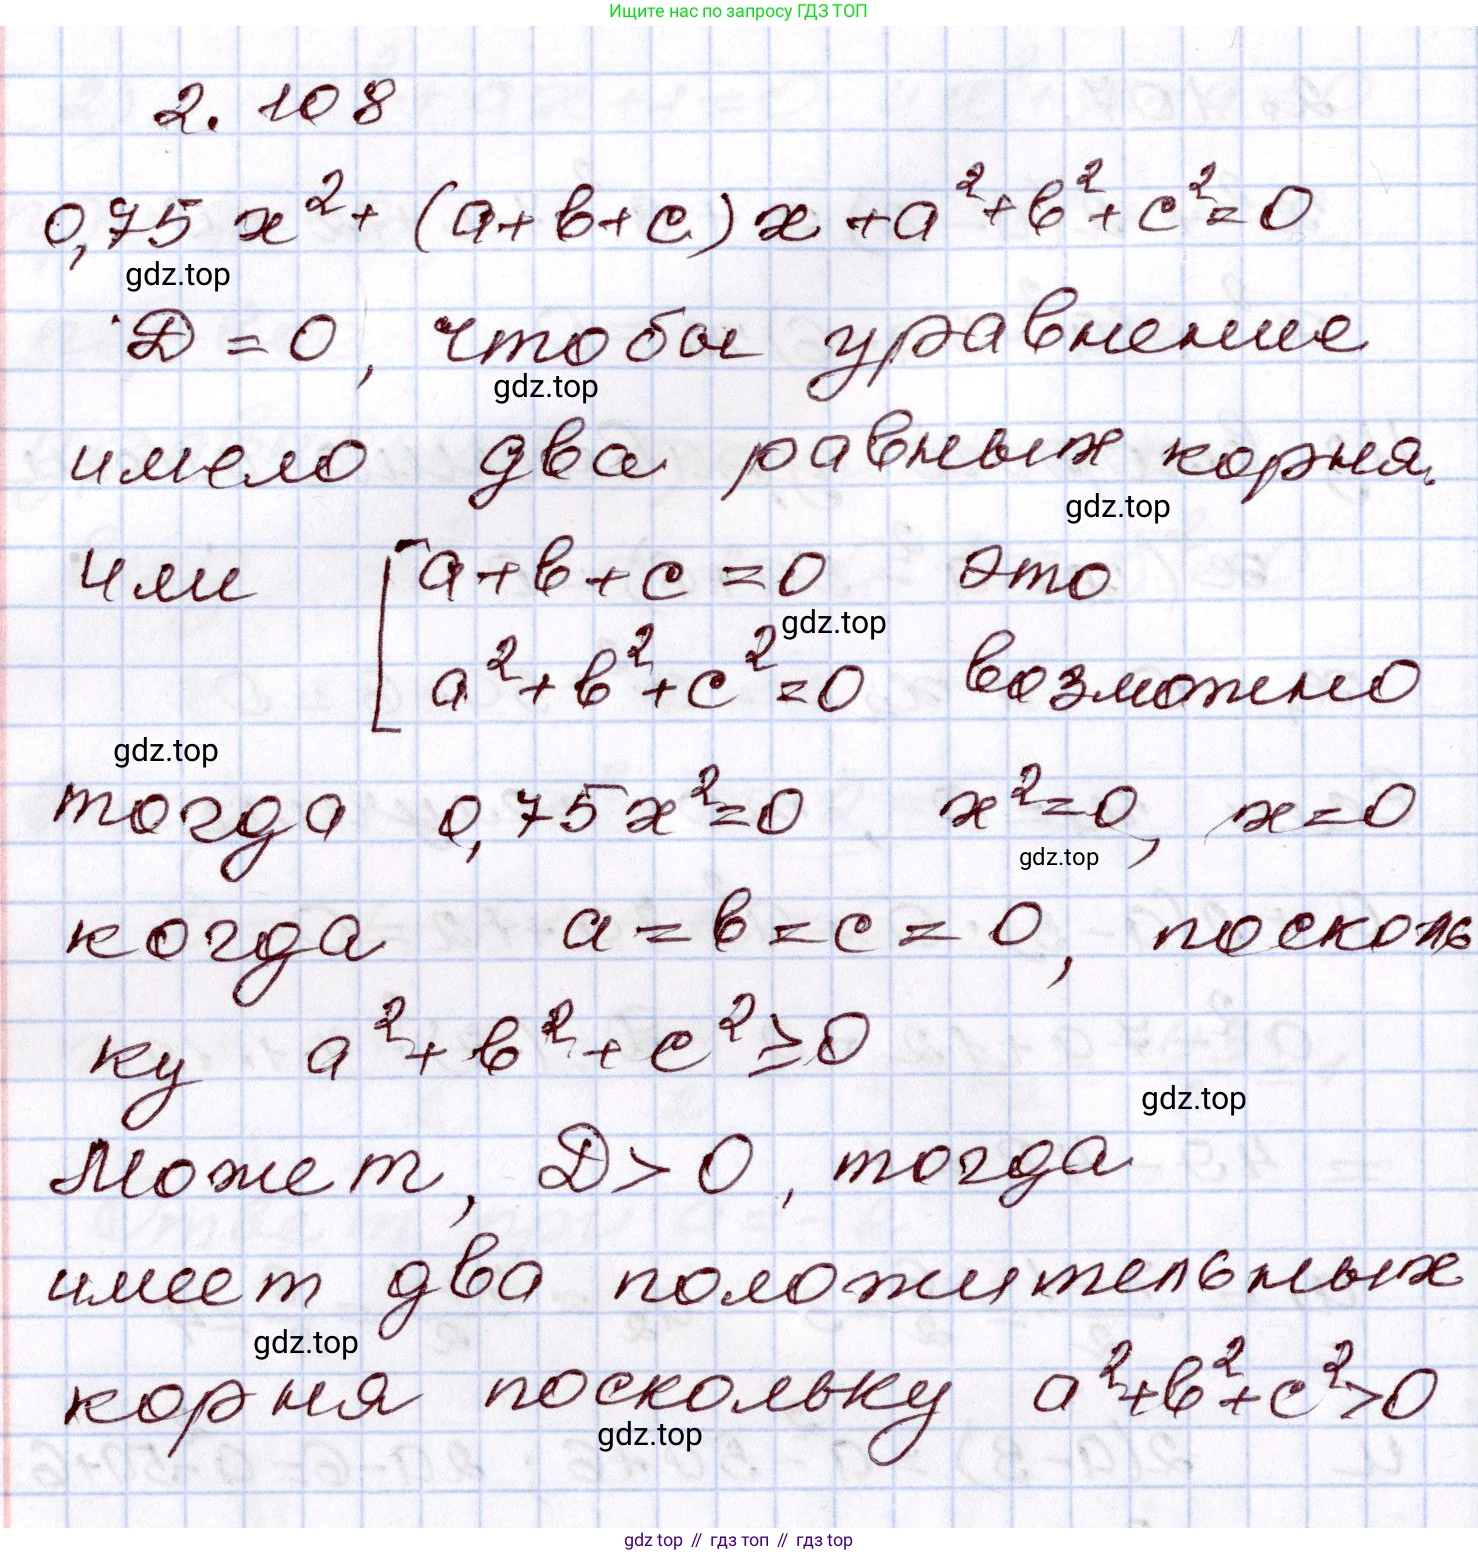 Ищите нас по запросу ГДЗ ТОП
2.108
0,75 x² + (a+b+c)x + a² + b² + c² = 0
gdz.top
D = 0, чтобы уравнение
gdz.top
имело два равных корня.
gdz.top
Или [ a+b+c = 0 это
gdz.top
a² + b² + c² = 0 возможно
gdz.top
тогда 0,75x² = 0 x² = 0, x = 0
gdz.top
когда a = b = c = 0, посколь
ку a² + b² + c² ≥ 0
gdz.top
Может, D > 0, тогда
имеет два положительных
gdz.top
корня поскольку a² + b² + c² > 0
gdz.top
gdz top // гдз топ // гдз top